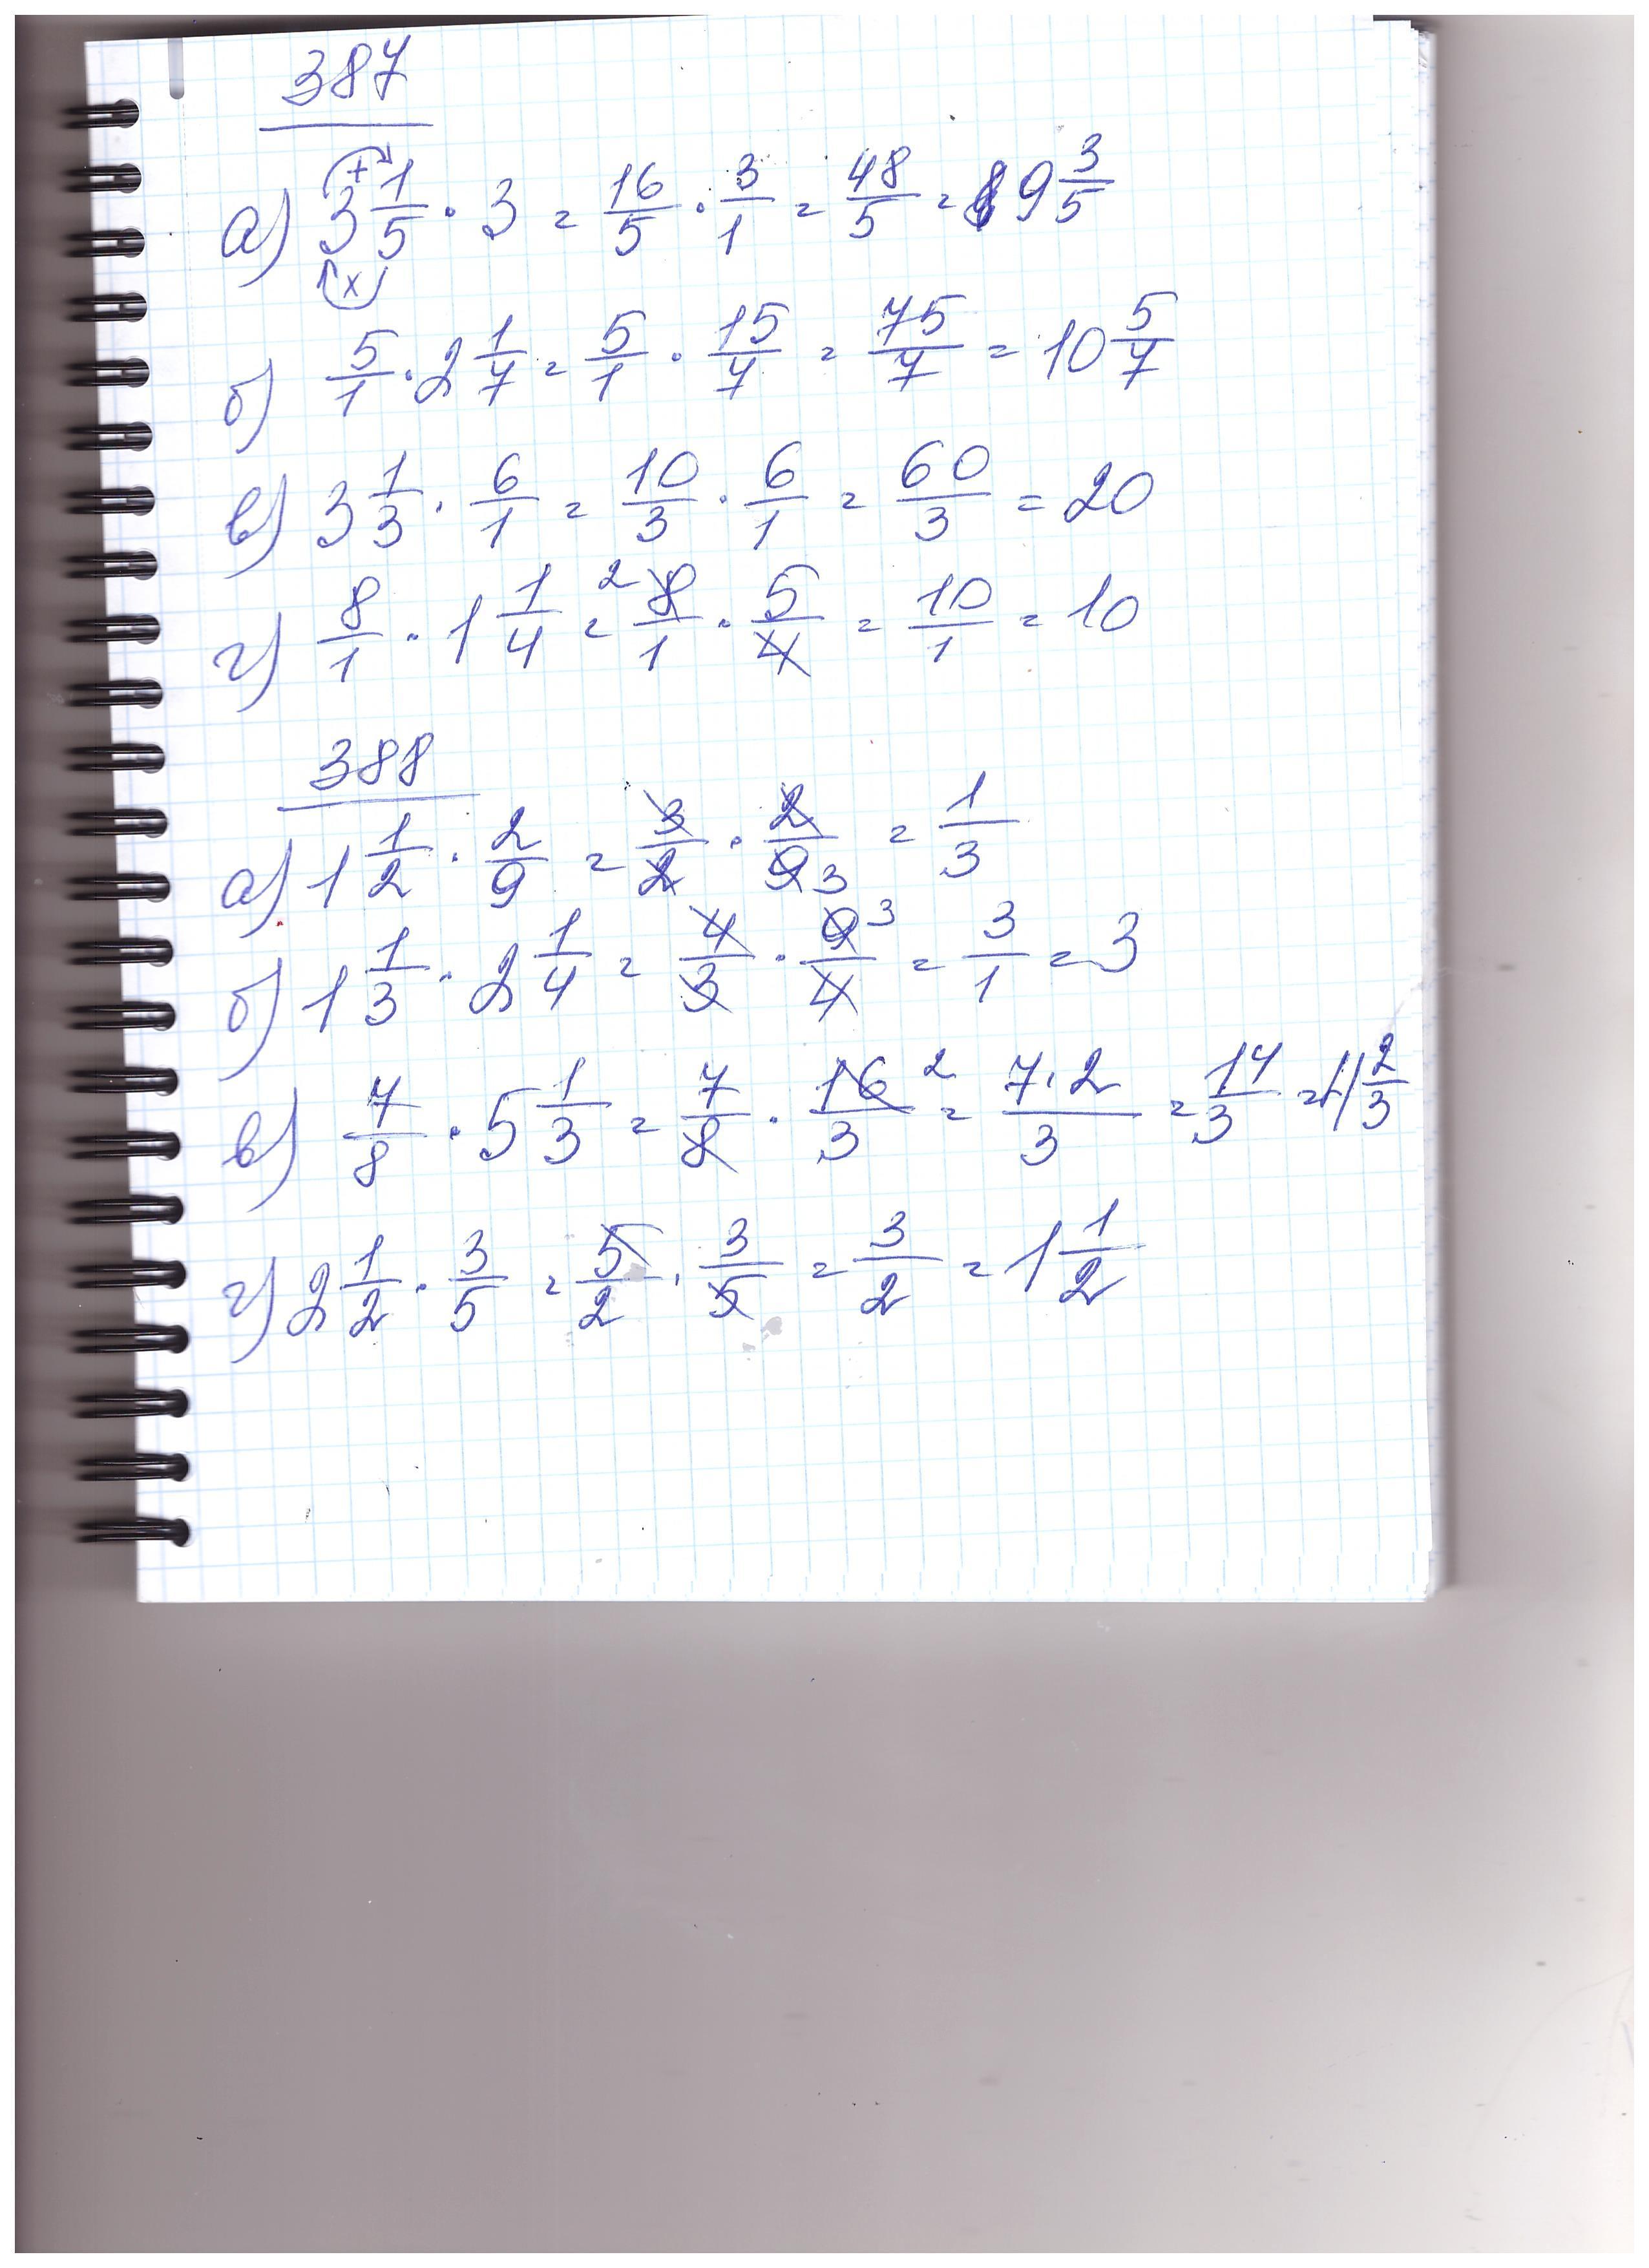 387
а) 3 1/5 · 3 = 16/5 · 3/1 = 48/5 = 9 3/5
б) 5/1 · 2 1/7 = 5/1 · 15/7 = 75/7 = 10 5/7
в) 3 1/3 · 6/1 = 10/3 · 6/1 = 60/3 = 20
г) 8/1 · 1 1/4 = 2 8/1 · 5/4 = 10/1 = 10
388
а) 1 1/2 · 2/9 = 3/2 · 2/9 3 = 1/3
б) 1 1/3 · 2 1/4 = 4/3 · 9/4 3 = 3/1 = 3
в) 7/8 · 5 1/3 = 7/8 · 16/3 2 = 7·2/3 = 14/3 = 4 2/3
г) 2 1/2 · 3/5 = 5/2 · 3/5 = 3/2 = 1 1/2